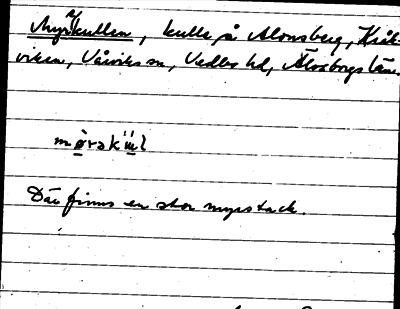 Myrekullen, kulle på Alonsberg, Kråk-
viken, Vårviks sn, Vedbo hd, Älvsborgs län.
Där finns en stor myrstack.